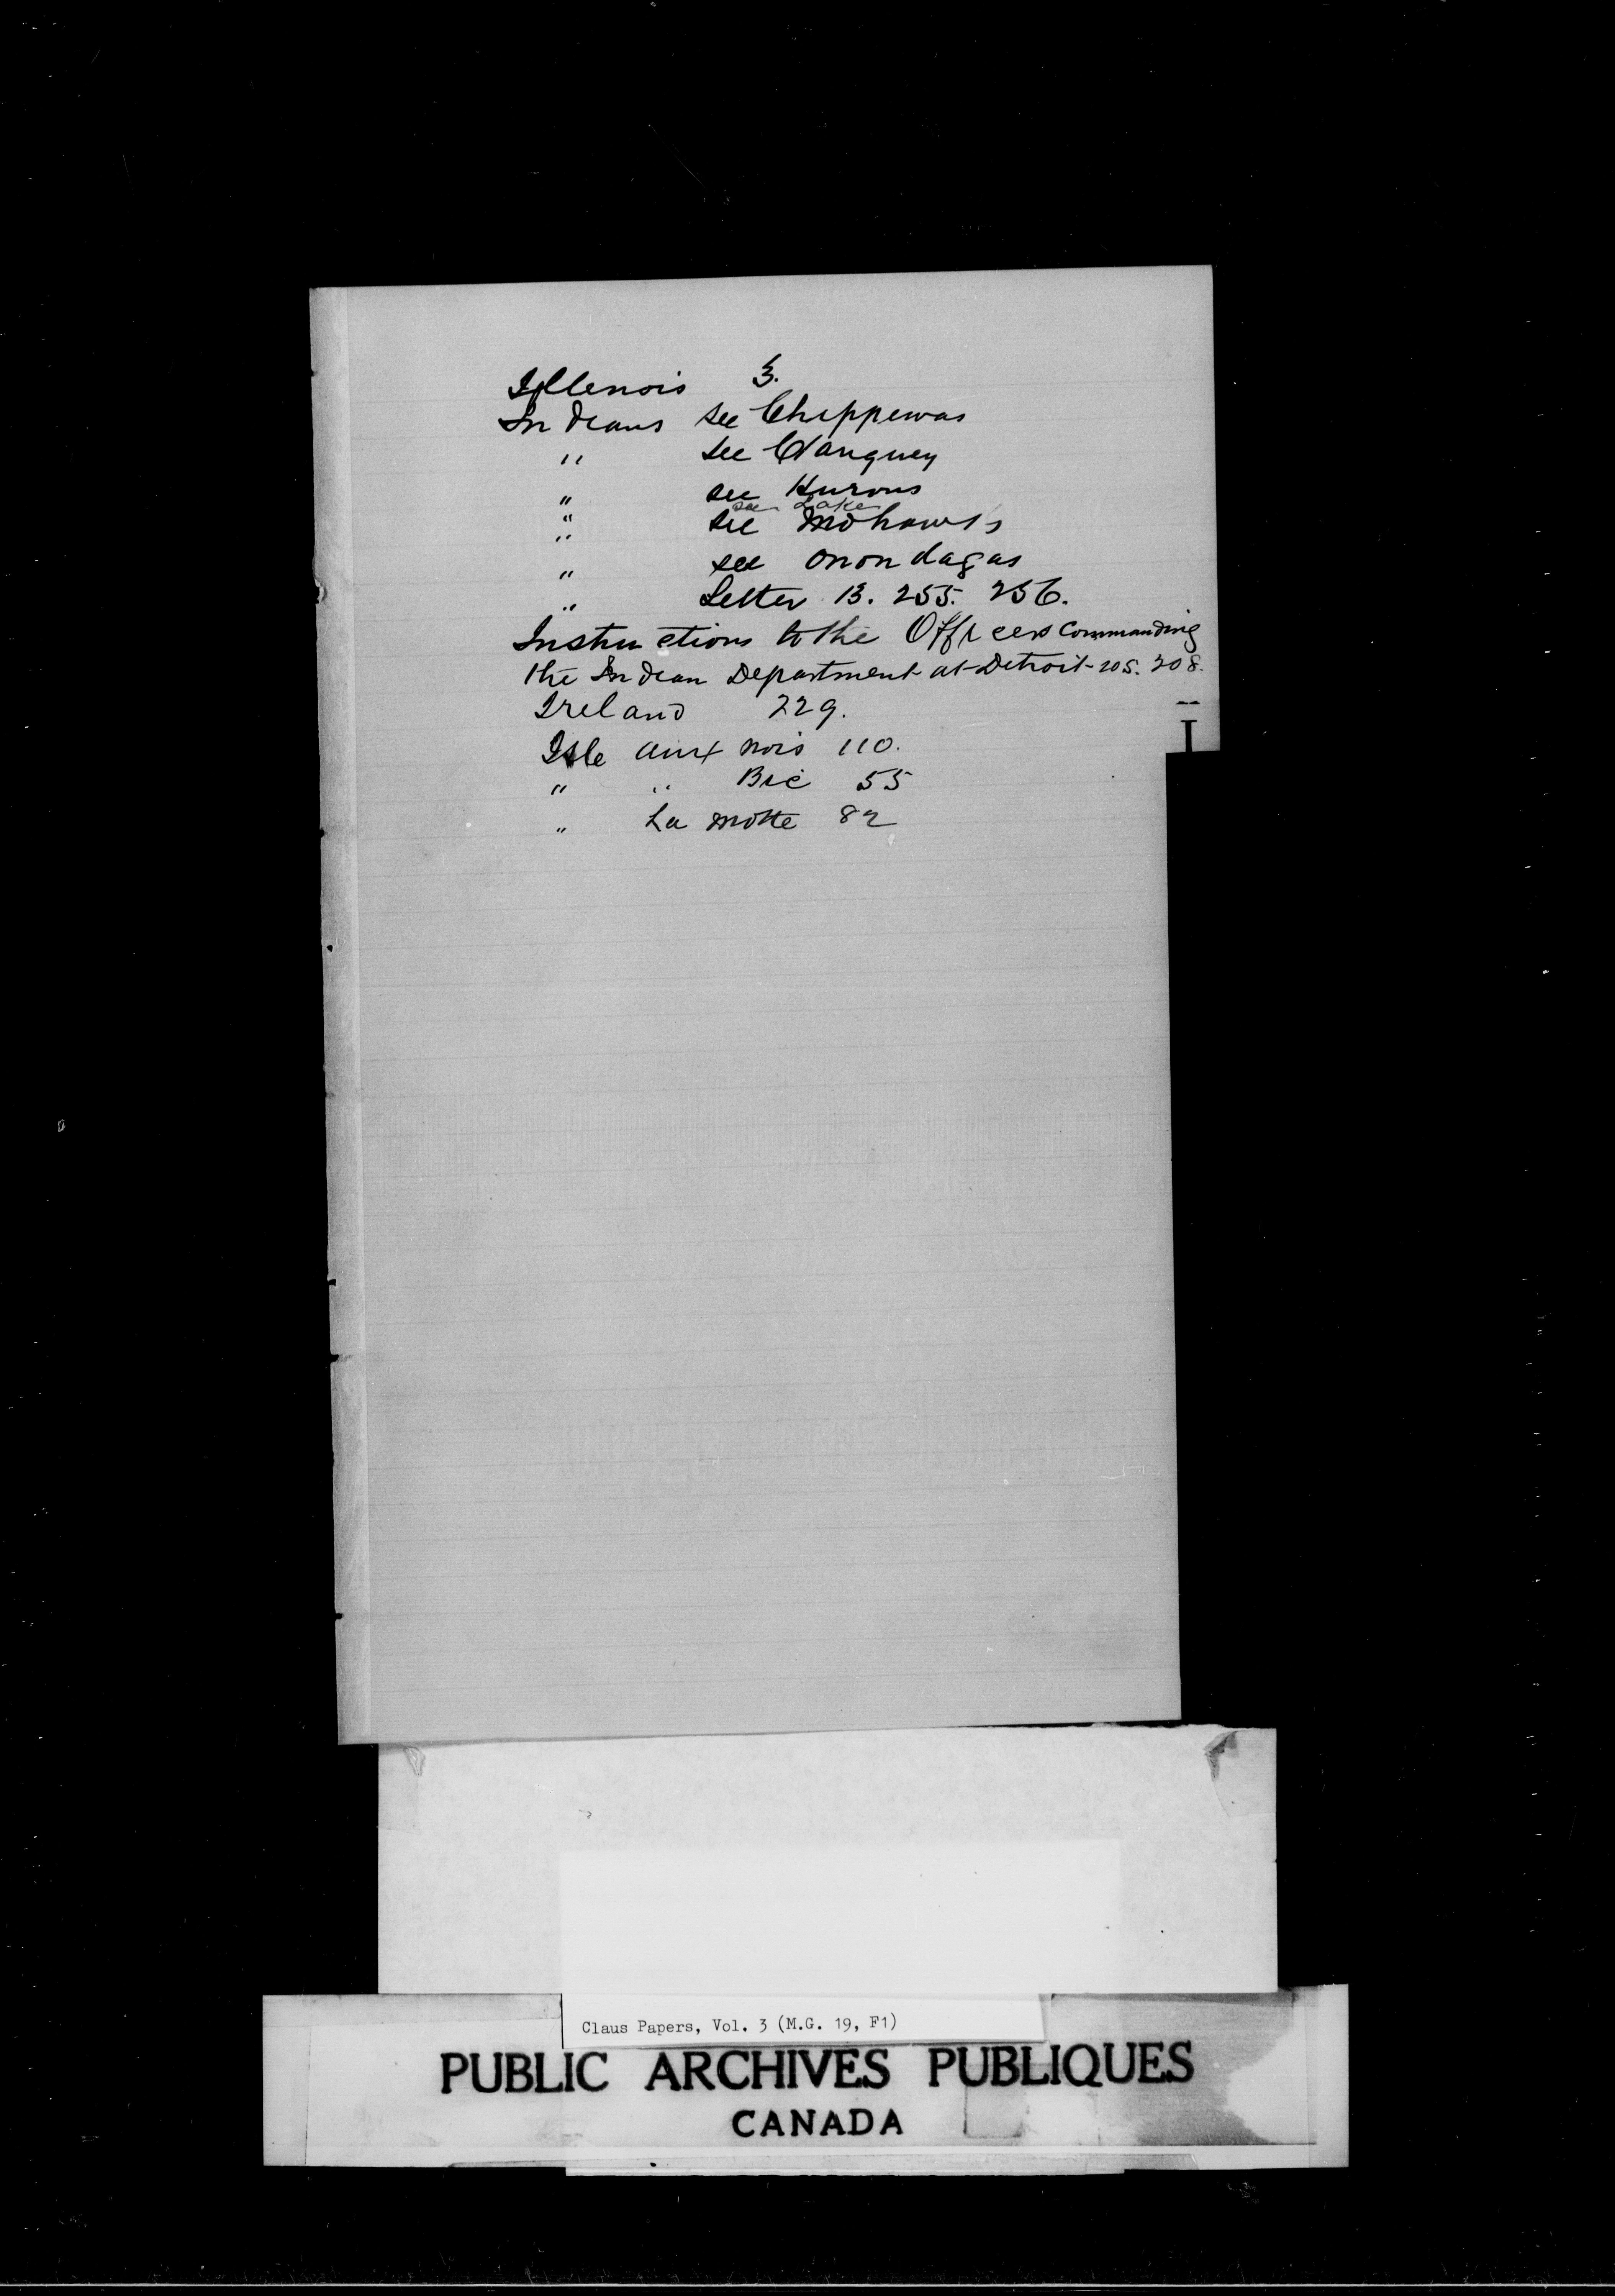 Illenois 3.
Indians see Chippewas
" see Canquey
" see Hurons
" see Lake
" see Mohawks
" see Onondagas
" Letter 13. 255. 256.
Instructions to the Officers Commanding
the Indian Department at Detroit 205. 208.
Ireland 229.
I
Isle aux nois 110.
" " Bic 55
" La Motte 82
Claus Papers, Vol. 3 (M.G. 19, F1)
PUBLIC ARCHIVES PUBLIQUES
CANADA